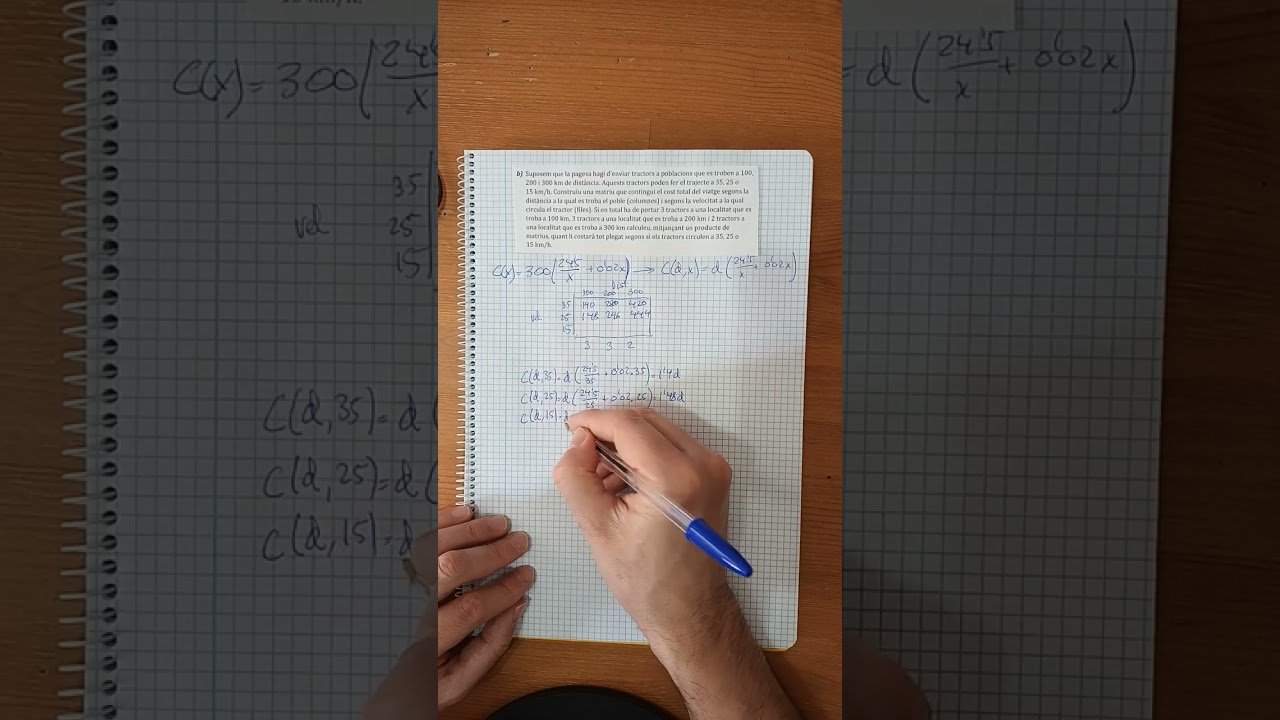 b) Suposem que la pagesa hagi d'enviar tractors a poblacions que es troben a 100,
200 i 300 km de distància. Aquests tractors poden fer el trajecte a 35, 25 o
15 km/h. Construïu una matriu que contingui el cost total del viatge segons la
distància a la qual es troba el poble (columnes) i segons la velocitat a la qual
circula el tractor (files). Si en total ha de portar 3 tractors a una localitat que es
troba a 100 km, 3 tractors a una localitat que es troba a 200 km i 2 tractors a
una localitat que es troba a 300 km calculeu, mitjançant un producte de
matrius, quant li costarà tot plegat segons si els tractors circulen a 35, 25 o
15 km/h.
C(x)=300(24'5/x + 0'02x) → C(d,x)=d(24'5/x + 0'02x)
dist
100 200 300
35 140 280 420
vel 25 148 296 444
15
3 3 2
C(d,35)=d(24'5/35 + 0'02·35)=1'4d
C(d,25)=d(24'5/25 + 0'02·25)=1'48d
C(d,15)=d